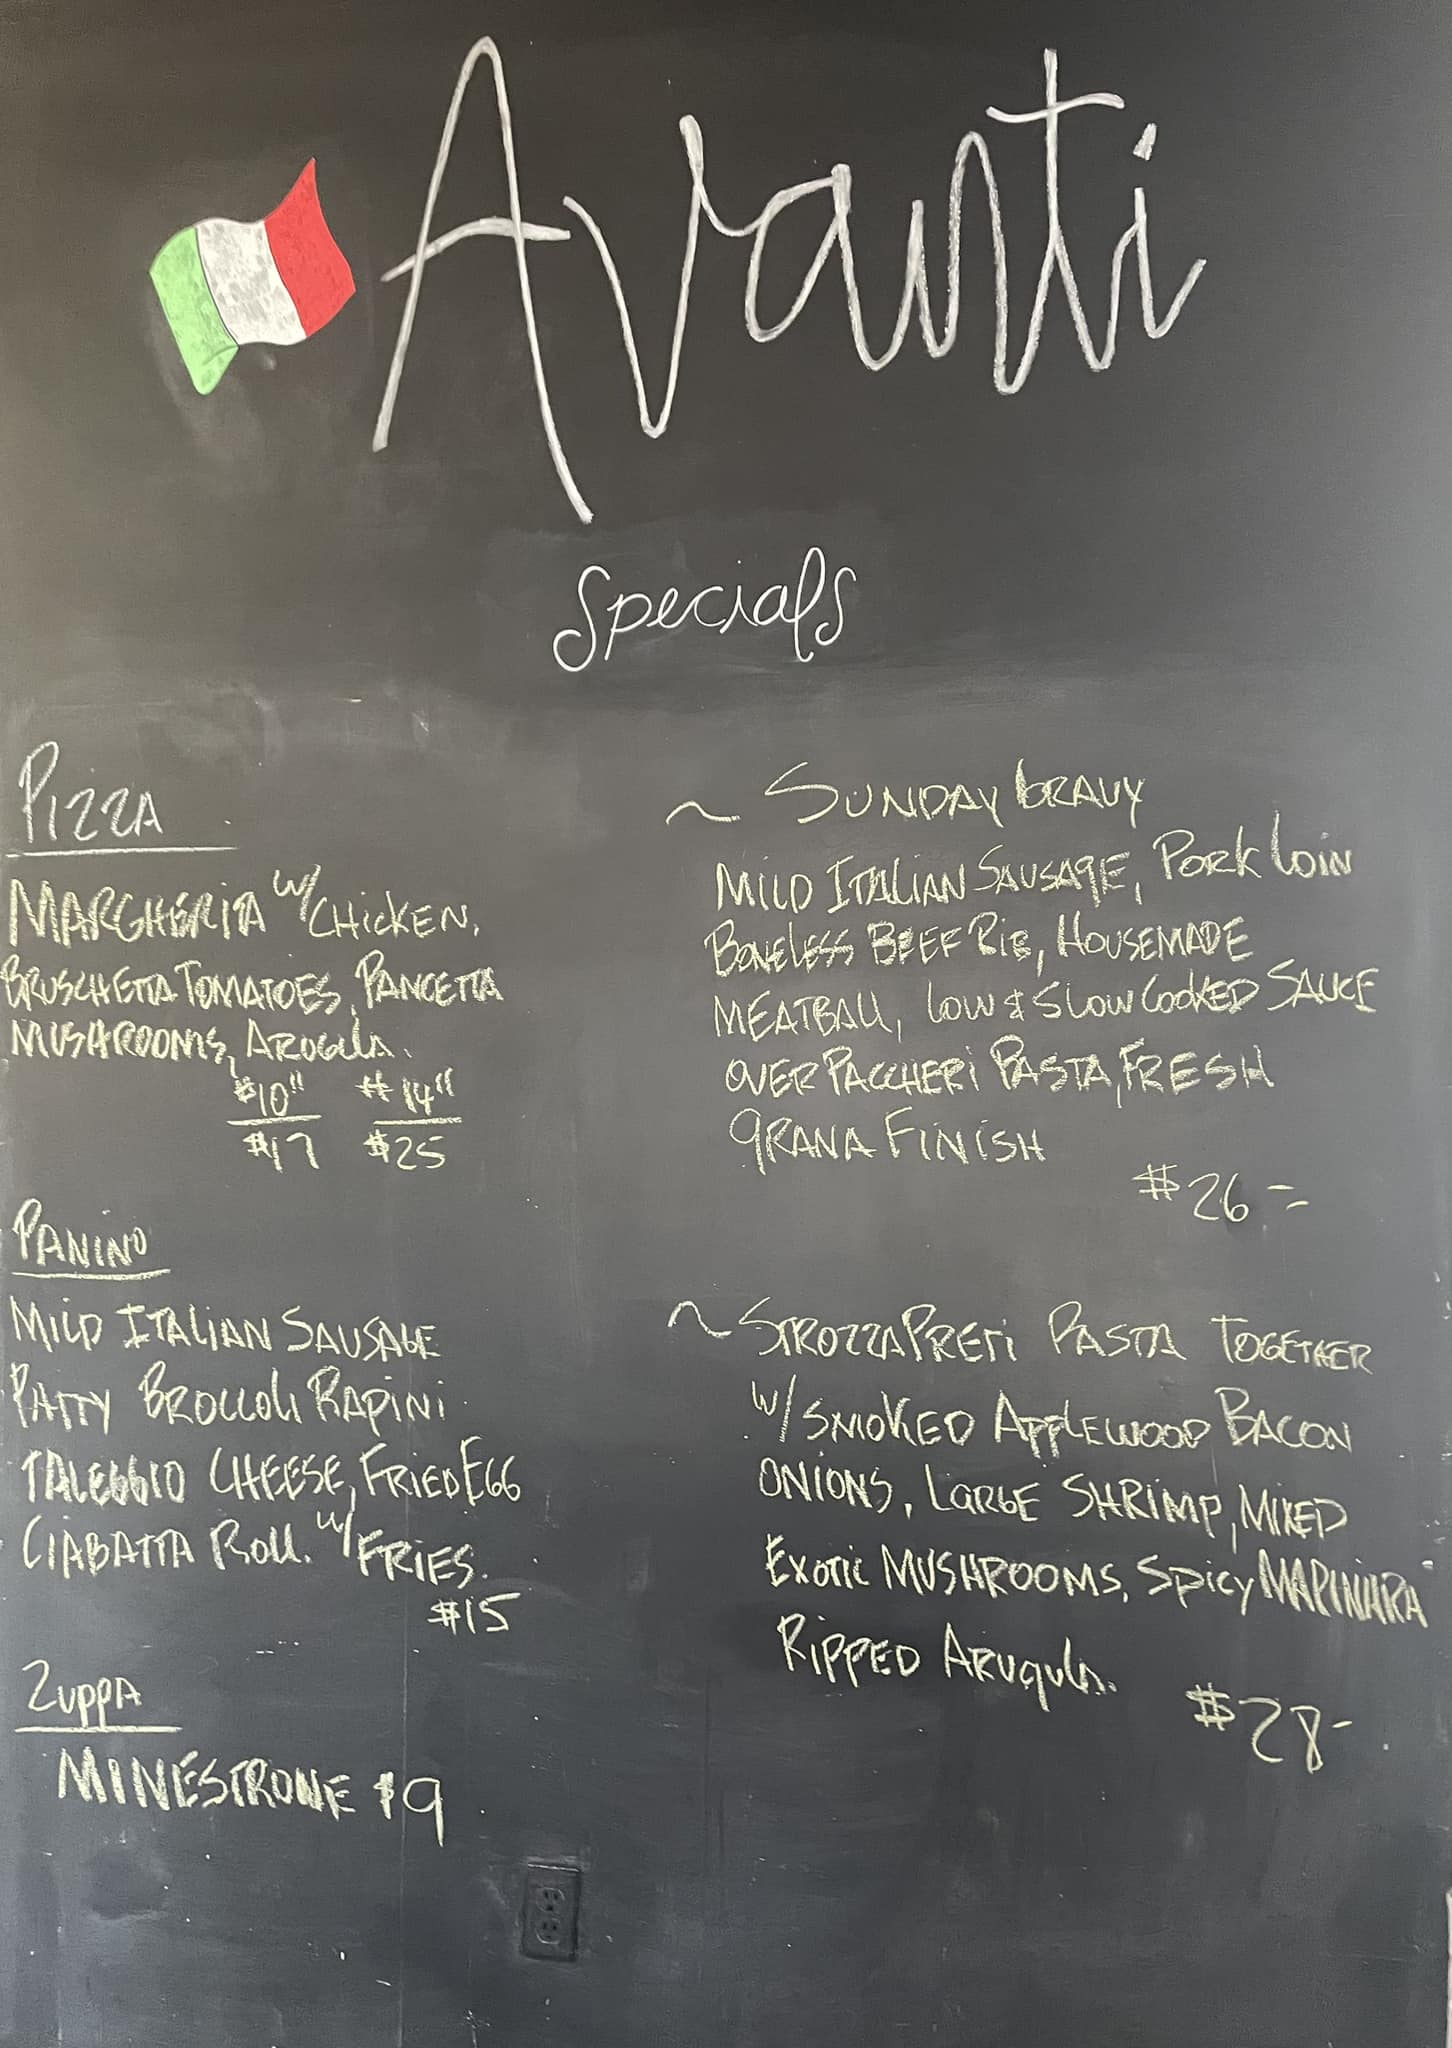 Avanti
Specials
PIZZA
MARGHERITA w/ CHICKEN,
BRUSCHETTA TOMATOES, PANCETTA
MUSHROOMS, AROGULA.
$10" # 14"
$17 $25
PANINO
MILD ITALIAN SAUSAGE
PATTY BROCCOLI RAPINI
TALEGGIO CHEESE, FRIED EGG
CIABATTA ROLL. w/ FRIES.
$15
ZUPPA
MINESTRONE $9
~ SUNDAY GRAVY
MILD ITALIAN SAUSAGE, PORK LOIN
BONELESS BEEF RIB, HOUSEMADE
MEATBALL, LOW & SLOW COOKED SAUCE
OVER PACCHERI PASTA, FRESH
GRANA FINISH
$26 =
~ STROZZAPRETI PASTA TOGETHER
w/ SMOKED APPLEWOOD BACON
ONIONS, LARGE SHRIMP, MIXED
EXOTIC MUSHROOMS, SPICY MARINARA
RIPPED ARUGULA.
$28-